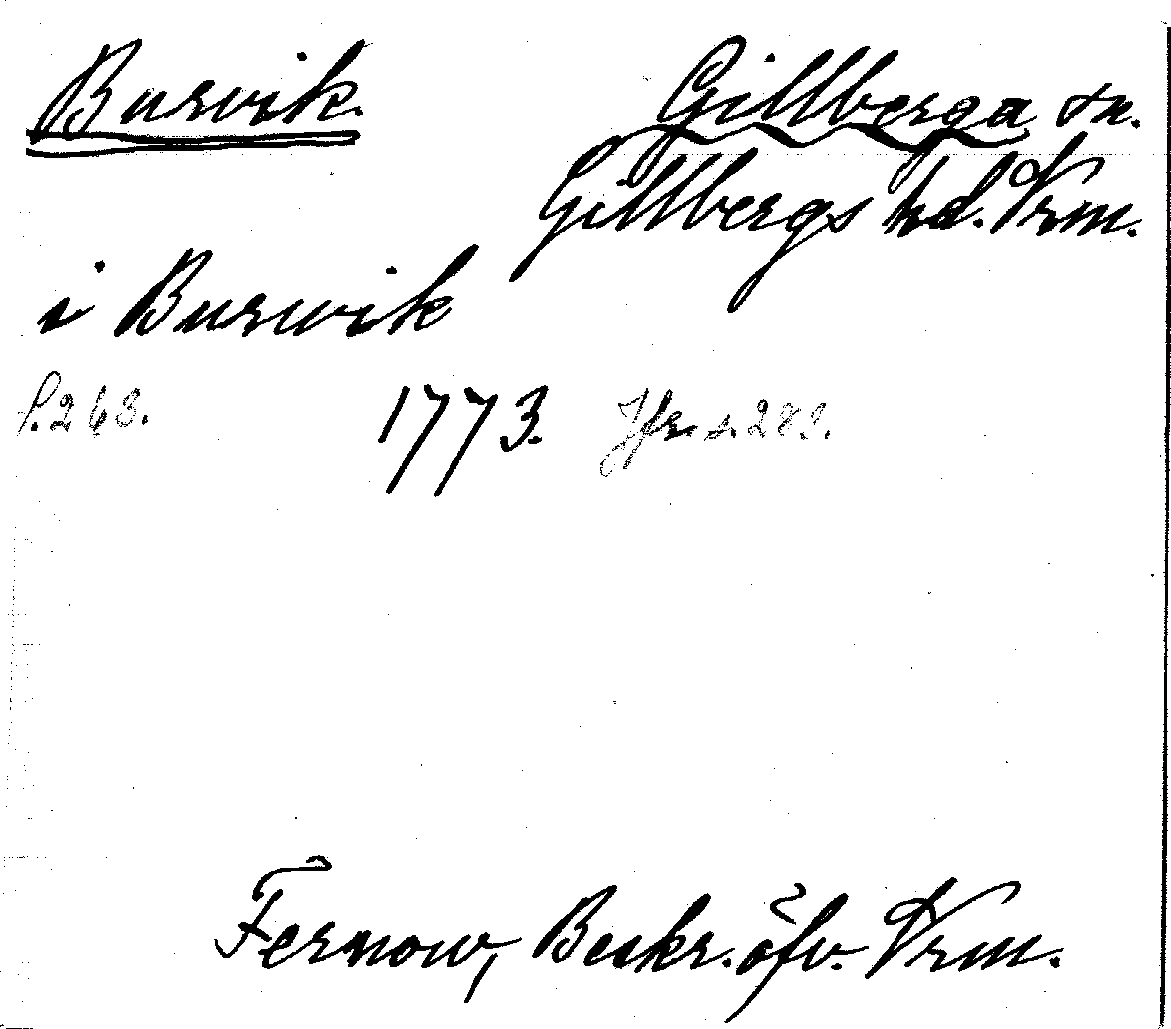 Burvik. Gillberga sn.
Gillbergs hd. Vrm.
i Burwik
S. 263. 1773. Jfr s. 283.
Fernow, Beskr. öfv. Vrm.